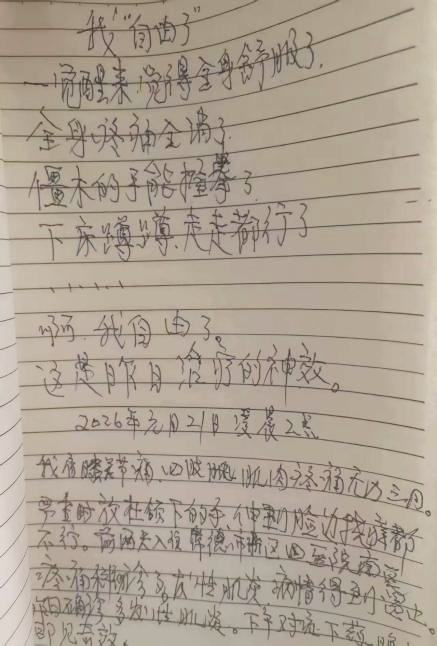 我“自由了”
一觉醒来,觉得全身舒服了,
全身疼痛全消了
僵木的手能握拳了
下床蹲蹲、走走都行了
……
啊,我自由了。
这是昨日治疗的神效。
2026年元月21日凌晨2点
我肩膝关节痛、四肢 肌肉疼痛无力三月。
严重时放在颌下的手,伸到脸边挠痒都
不行。前两天入住 市 四医院
疼痛科 诊多发性肌炎,病情得到
昨日确诊多发性肌炎。下午对症下药,
即见奇效。